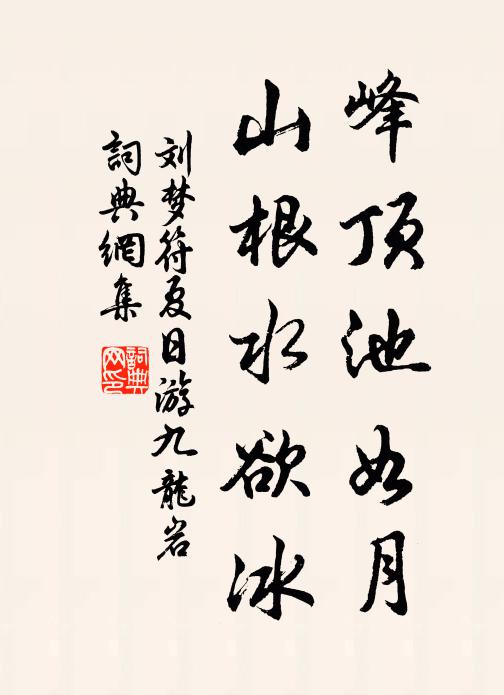 峰顶池如月
山根水欲冰
刘梦符夏日游九龍岩
詞典網集
詞典网印